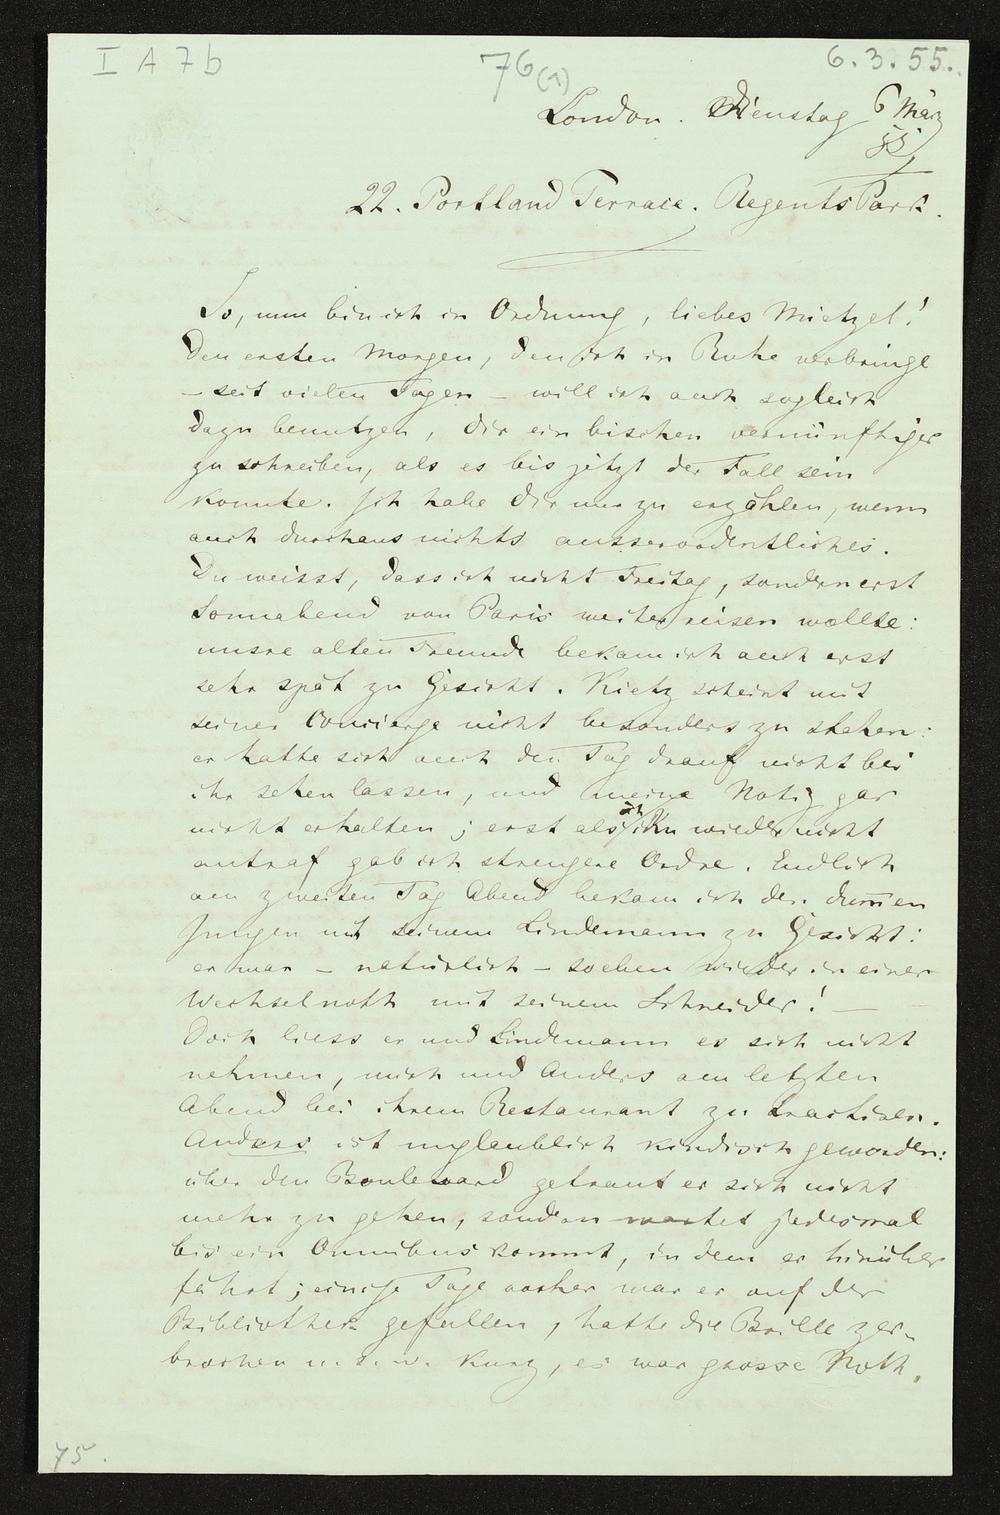 I A 7 b
76(1)
6.3.55.
London. Dienstag 6 März
55
22. Portland Terrace. Regents Park.
So, nun bin ich in Ordnung, liebes Mietzel!
Den ersten Morgen, den ich in Ruhe verbringe
– seit vielen Tagen – will ich auch sogleich
dazu benutzen, dir ein bischen vernünftiger
zu schreiben, als es bis jetzt der Fall sein
konnte. Ich habe Dir nur zu erzählen, wenn
auch durchaus nichts ausserordentliches.
Du weisst, dass ich nicht Freitag, sondern erst
Sonnabend von Paris weiter reisen wollte:
unsre alten Freunde bekam ich auch erst
sehr spät zu Gesicht. Kietz scheint mit
seiner Concierge nicht besonders zu stehen:
er hatte sich auch den Tag drauf nicht bei
ihr sehen lassen, und meine Notiz gar
nicht erhalten; erst als ich ihn wieder nicht
antraf gab ich strengere Ordre. Endlich
am zweiten Tag Abend bekam ich den dum̅en
Jungen mit seinem Lindemann zu Gesicht:
er war – natürlich – soeben wieder in einer
Wechselnoth mit seinem Schneider! —
Doch liess er und Lindemann es sich nicht
nehmen, mich und Anders am letzten
Abend bei ihrem Restaurant zu tractiren.
Anders ist unglaublich kindisch geworden:
über den Boulevard getraut er sich nicht
mehr zu gehen, sondern wartet jedesmal
bis ein Omnibus kommt, in dem er hinüber
fährt; einige Tage vorher war er auf der
Bibliothek gefallen, hatte die Brille zer-
brochen u.s.w. Kurz, es war grosse Noth.
75.